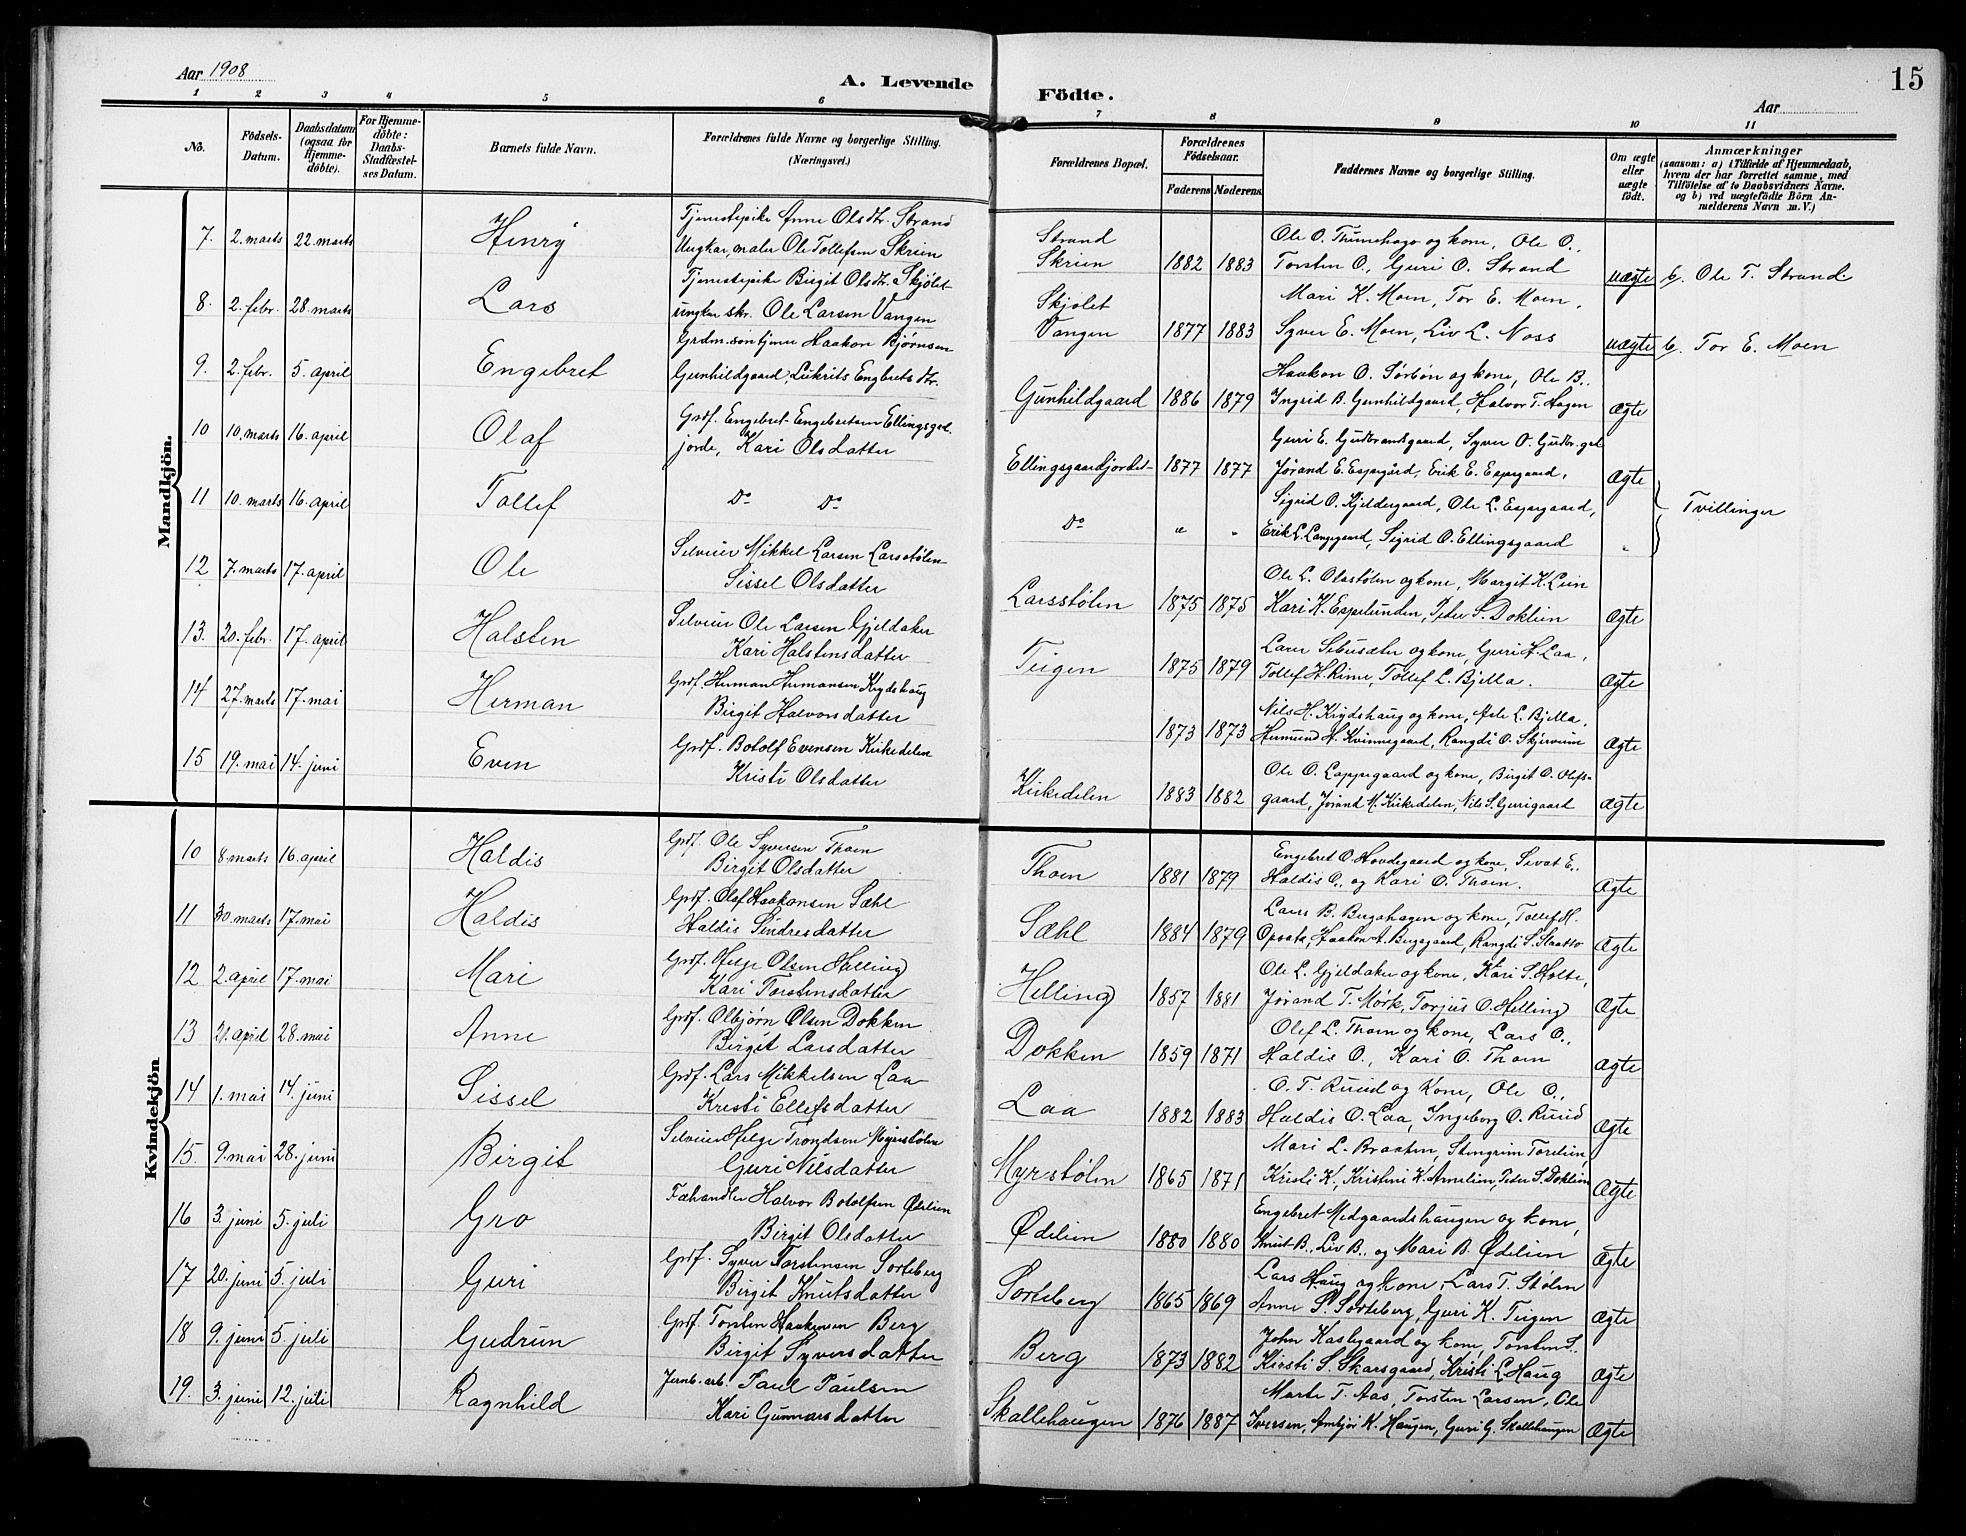 Aar 1908
A. Levende Födte.
Aar
15
1 2 3 4 5 6 7 8 9 10 11
No.
Födsels-Datum.
Daabsdatum (ogsaa for Hjemmedöbte).
For Hjemmedöbte: Daabs-Stadfæstelses Datum.
Barnets fulde Navn.
Forældrenes fulde Navne og borgerlige Stilling. (Næringsvei.)
Forældrenes Bopæl.
Forældrenes Födselsaar.
Faderens Moderens
Faddernes Navne og borgerlige Stilling.
Om ægte eller uægte födt.
Anmærkninger
(saasom: a) i Tilfælde af Hjemmedaab,
hvem der har forrettet samme, med
Tilföielse af to Daabsvidners Navne.
og b) ved uægtefödte Börn An-
melderens Navn m. V.)
Mandkjön.
7. 2. marts 22. marts Henry Tjenestepike Anne Olsdtr. Strand Strand Ole O. Thunehago og kone, Ole O.,
Ungkar, maler Ole Tollefsen Skrien Skrien 1882 1883 Torsten O., Guri O. Strand uægte b. Ole T. Strand.
8. 2. febr. 28. marts Lars Tjenestepike Birgit Olsdtr. Skjølet Skjølet Mari K. Moen, Tor E. Moen,
ungkar skr. Ole Larsen Vangen Vangen 1877 1883 Syver E. Moen, Liv L. Noss uægte b. Tor E. Moen
9. 2. febr. 5. april Engebret Grdm.søn tjener Haakon Bjørnsen Haakon O. Sørbøn og kone, Ole B.,
Gunhildgaard, Liikrits Engbrets dtr. Gunhildgaard 1886 1879 Ingrid B. Gunhildgaard, Halvor T. Hagen ægte
10 10. marts 16. april Olaf Grdf. Engebret Engebretsen Ellingsgrd- Guri E. Gudbrandsgaard, Syver O. Gudbr.grd
jorde, Kari Olsdatter Ellingsgaardjordet 1877 1877 Jørand E. Espegård, Erik E. Espegaard, ægte
11 10. marts 16. april Tollef Do Do Sigrid O. Kjeldergaard, Ole L. Espegaard, Tvillinger
Do " " Erik L. Langegaard, Sigrid O. Ellingsgaard "
12 7. marts 17. april Ole Selveier Mikkel Larsen Larsstølen Ole L. Olastølen og kone, Margit K. Lein
Sissel Olsdatter Larsstølen 1875 1875 Kari K. Espelunden, Peder S. Doklien ægte
13. 20. febr. 17. april Halsten Selveier Ole Larsen Gjeldaker Lars Sebusæter og kone, Guri H. Laa,
Kari Halstensdatter Teigen 1875 1879 Tollef H. Rime, Tollef L. Bjella. ægte
14 27. marts 17. mai Herman Grdf. Herman Hermansen Krydshaug Nils H. Krydshaug og kone, Asle L. Bjella,
Birgit Halvorsdatter 1873 1873 Hermund H. Kvinnegaard, Rangdi O. Skjervum ægte
15 19. mai 14. juni Even Grdf. Botolf Evensen Kirkedelen Ole O. Lappegaard og kone, Birgit O. Olefs-
Kristi Olsdatter Kirkedelen 1883 1882 gaard, Jørand M. Kirkedelen, Nils S. Gurigaard ægte
Kvindekjön
10 8. marts 16. april Haldis Grdf. Ole Syversen Thoen Engebret O. Hovdegaard og kone, Sevat E.,
Birgit Olsdatter Thoen 1881 1879 Haldis O., og Kari O. Thoen. ægte
11 30. marts 17. mai Haldis Grdf. Olaf Haakonsen Sæhl Lars B. Bergahagen og kone, Tollef H.
Haldis Sindresdatter Sæhl 1884 1879 Opsata, Haakon A. Bergsgaard, Rangdi S. Slaatto ægte
12 2. april 17. mai Mari Grdf. Helge Olsen Helling Ole L. Gjeldaker og kone, Kari S. Holte,
Kari Torstensdatter Helling 1857 1881 Jørand T. Mørk, Torjus O. Helling ægte
13 21. april 28. mai Anne Grdf. Olbjørn Olsen Dokken Olef L. Thoen og kone, Lars O.,
Birgit Larsdatter Dokken 1859 1871 Haldis O., Kari O. Thoen ægte
14 1. mai 14. juni Sissel Grdf. Lars Mikkelsen Laa O. T. Ruud og Kone, Ole O.,
Kristi Ellefsdatter Laa 1882 1883 Haldis O. Laa, Ingeborg O. Ruud ægte
15. 9. mai 28. juni Birgit Selveier Helge Trondsen Myrstølen Mari L. Braaten, Stengrim Torelien,
Guri Nilsdatter Myrstølen 1865 1871 Kristi K., Kristini K. Arnelien, Peder S. Doklien ægte
16 3. juni 5. juli Gro Fæhandler Halvor Botolfsen Ødelien Engebret Medgaardshaugen og kone,
Birgit Olsdatter Ødelien 1880 1880 Knut B., Liv B., og Mari B. Ødelien ægte
17 20. juni 5. juli Guri Grdf. Syver Torstensen Sorteberg Lars Haug og kone, Lars T. Stølen
Birgit Knutsdatter Sorteberg 1865 1869 Anne S. Sorteberg, Guri K. Teigen ægte
18 9. juni 5. juli Gudrun Grdf. Torsten Haakensen Berg John Kaslegaard og kone, Torsten S.
Birgit Syversdatter Berg 1873 1882 Kirsti S. Skarsgaard, Kristi L. Haug ægte
19. 3. juni 12. juli Ragnhild Jernb. arb. Paul Paulsen Marte T. Aas, Torsten Larsen, Ole
Kari Gunnarsdatter Skallehaugen 1876 1887 Iversen, Ambjør K. Haugen, Guri G. Skallehaugen ægte